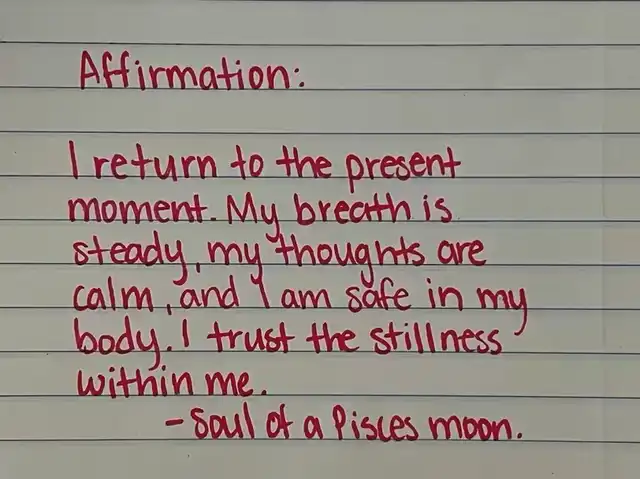 Affirmation:
I return to the present
moment. My breath is
steady, my thoughts are
calm, and I am safe in my
body. I trust the stillness
within me.
- Soul of a Pisces moon.